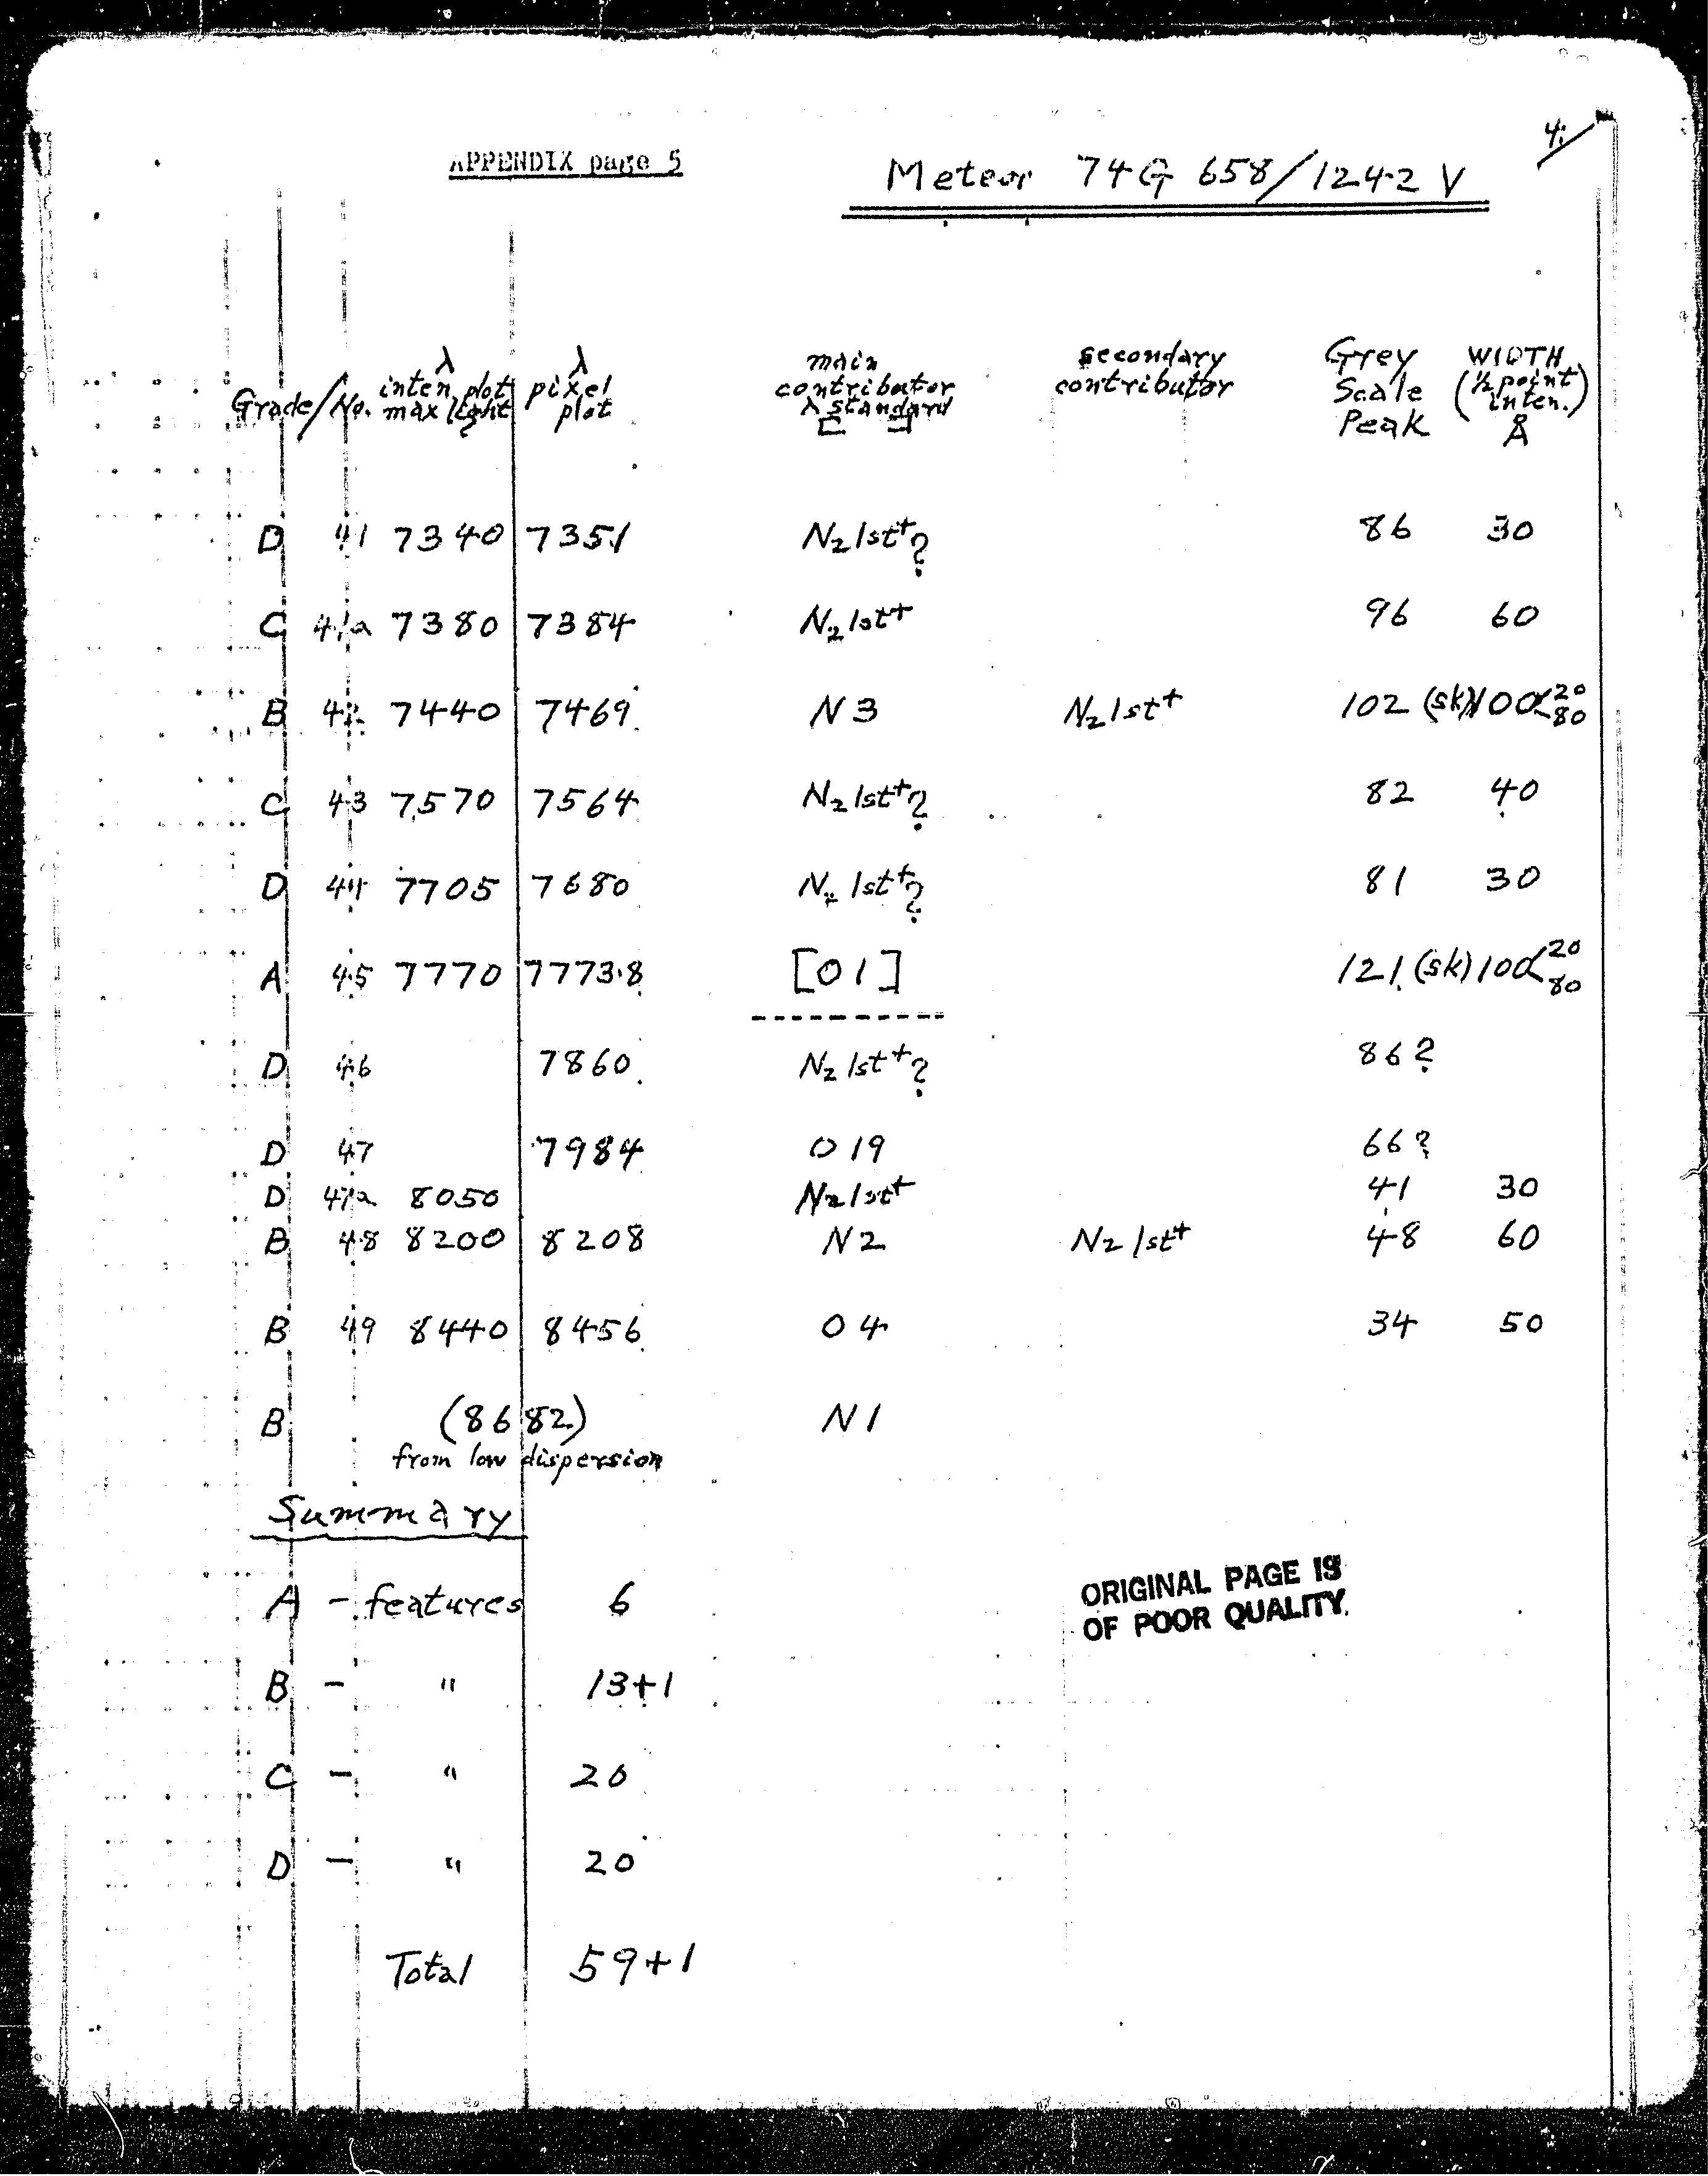 4.
APPENDIX page 5
Meteor 74G 658/1242 V
Grade/No. λ inten plot max light λ pixel plot main contributor λ standard [ ] secondary contributor Grey Scale Peak WIDTH (½ point inten.) Å
D 41 7340 7351 N2 1st+? 86 30
C 41a 7380 7384 N2 1st+ 96 60
B 42 7440 7469 N3 N2 1st+ 102 (sk) 100<20 80
C 43 7570 7564 N2 1st+? 82 40
D 44 7705 7680 N2 1st+? 81 30
A 45 7770 7773.8 [O1] 121 (sk) 100<20 80
D 46 7860 N2 1st+? 86?
D 47 7984 O19 66?
D 47a 8050 N2 1st+ 41 30
B 48 8200 8208 N2 N2 1st+ 48 60
B 49 8440 8456 O4 34 50
B (8682) N1
from low dispersion
Summary
A - features 6
B - " 13+1
C - " 20
D - " 20
Total 59+1
ORIGINAL PAGE IS
OF POOR QUALITY